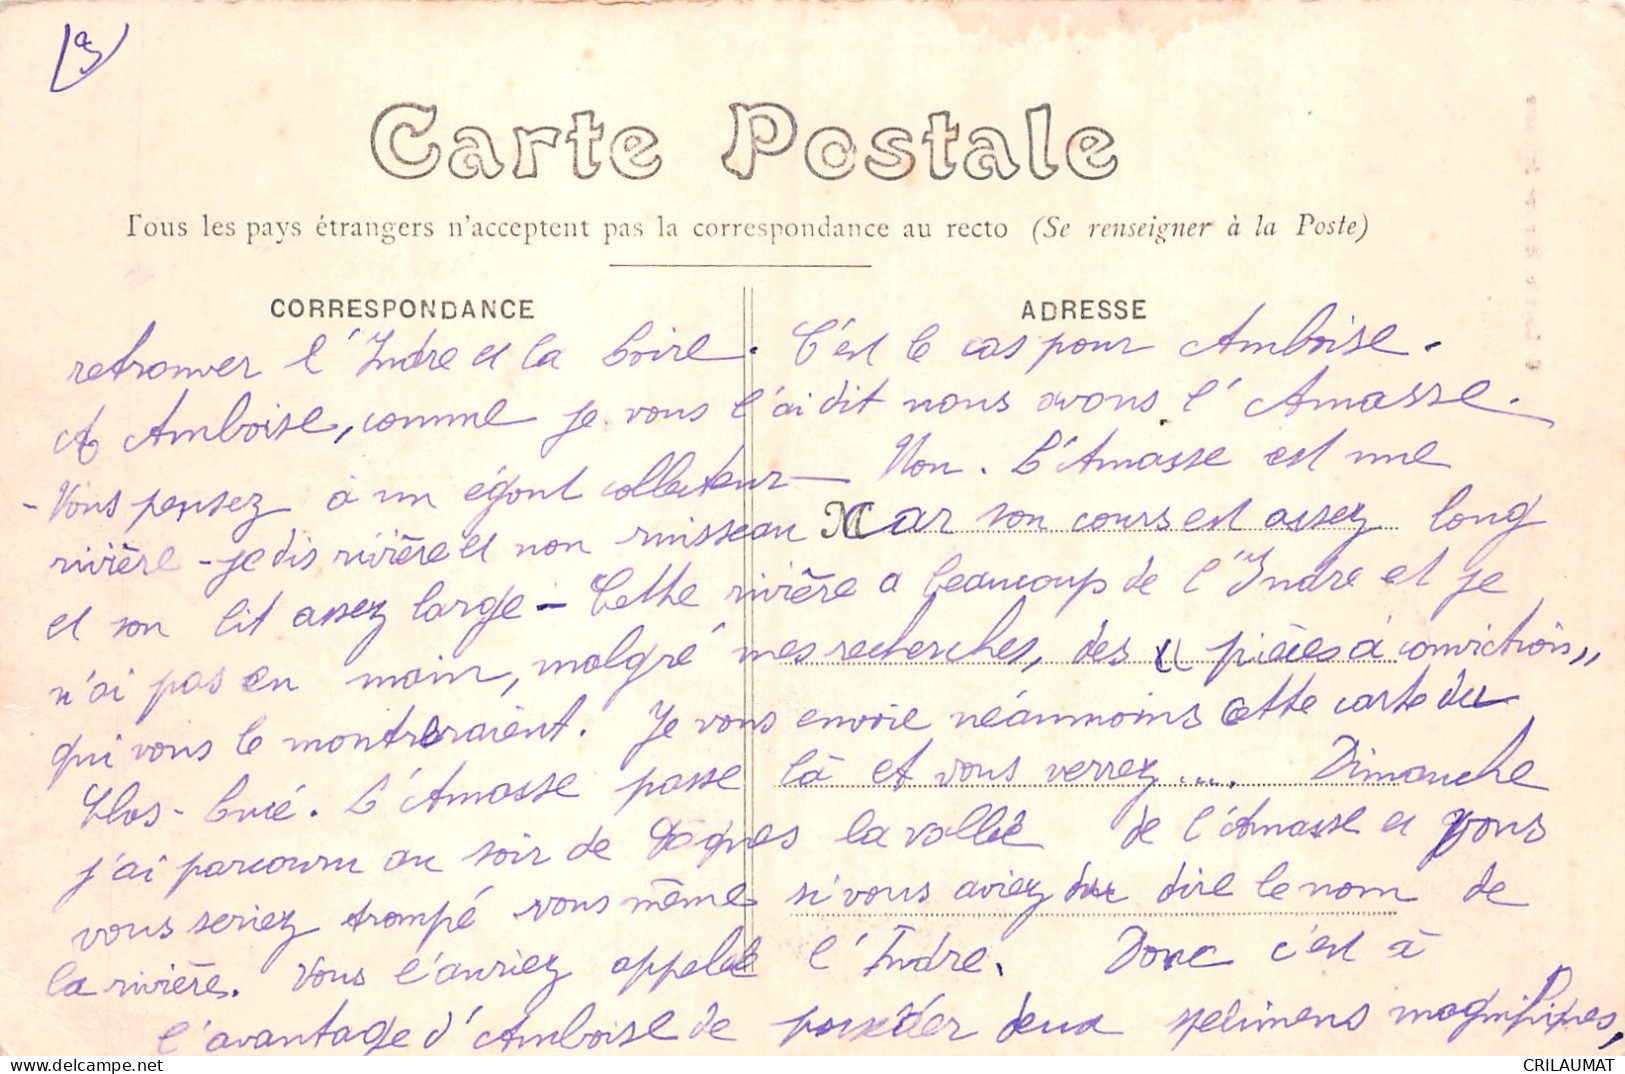 Carte Postale
Tous les pays étrangers n'acceptent pas la correspondance au recto (Se renseigner à la Poste)
CORRESPONDANCE
ADRESSE
retrouver l'Indre et la Loire. C'est le cas pour Amboise.
A Amboise, comme je vous l'ai dit nous avons l'Amasse.
- Vous pensez à un égout collecteur — Non. L'Amasse est une
rivière - je dis rivière et non ruisseau M car son cours est assez long
et son lit assez large - Cette rivière a beaucoup de l'Indre et je
n'ai pas en main, malgré mes recherches, des "pièces à conviction"
qui vous le montreraient. Je vous envoie néanmoins cette carte du
Clos-Lucé. L'Amasse passe là et vous verrez.... Dimanche
j'ai parcouru au soir de Pâques la vallée de l'Amasse et vous
vous seriez trompé vous même si vous aviez dû dire le nom de
la rivière. Vous l'auriez appelée l'Indre. Donc c'est à
l'avantage d'Amboise de posséder deux spécimens magnifiques,
CRILAUMAT